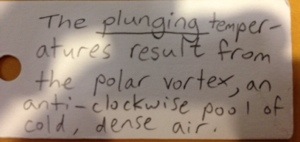 The plunging temper-
atures result from
the polar vortex, an
anti-clockwise pool of
cold, dense air.